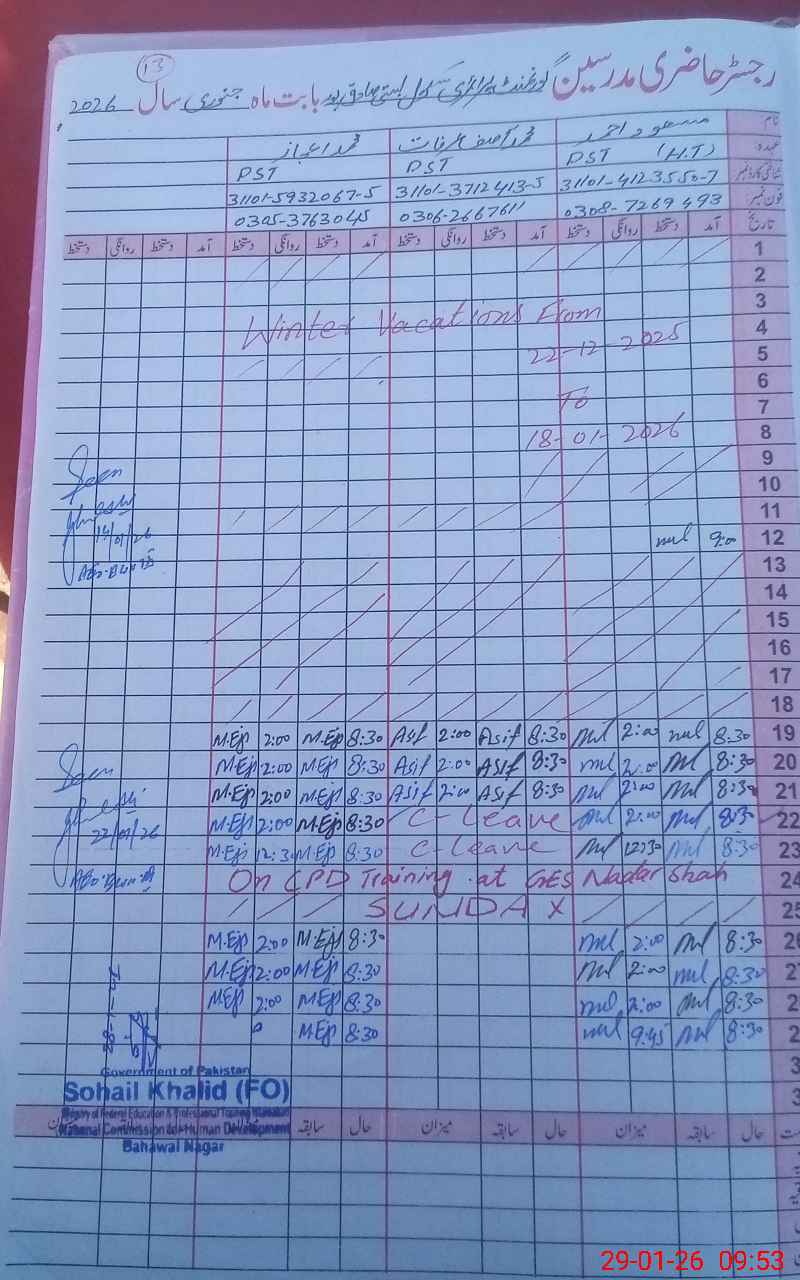 13
رجسٹر حاضری مدرسین گورنمنٹ پرائمری سکول بستی صادق پور بابت ماہ جنوری سال 2026
نام مسعود احمد محمد آصف عرفات محمد اعجاز
عہدہ PST (H.T) PST PST
شناختی کارڈ نمبر 31101-4123550-7 31101-3712413-5 31101-5932067-5
فون نمبر 0308-7269493 0306-2667611 0305-3763045
تاریخ آمد دستخط روانگی دستخط آمد دستخط روانگی دستخط آمد دستخط روانگی دستخط آمد دستخط روانگی دستخط
1
2
3
Winter Vacations From
4
22-12-2025
5
6
To
7
18-01-2026
8
9
10
11
12 9:00
14/01/26
13
14
15
16
17
18
M.Ejj 2:00 M.Ejj 8:30 Asif 2:00 Asif 8:30 2:00 8:30 19
M.Ejj 2:00 M.Ejj 8:30 Asif 2:00 Asif 8:30 2:00 8:30 20
M.Ejj 2:00 M.Ejj 8:30 Asif 2:00 Asif 8:30 2:00 8:30 21
M.Ejj 2:00 M.Ejj 8:30 C-Leave 2:00 8:30 22
M.Ejj 12:30 M.Ejj 8:30 C-Leave 12:30 8:30 23
On CPD Training at GES Nadar Shah 24
SUNDAY 25
M.Ejj 2:00 M.Ejj 8:30 2:00 8:30 2
M.Ejj 2:00 M.Ejj 8:30 2:00 8:30 2
M.Ejj 2:00 M.Ejj 8:30 2:00 8:30 2
M.Ejj 8:30 9:45 8:30 2
3
3
Government of Pakistan
Sohail Khalid (FO)
Ministry of Federal Education & Professional Training Islamabad
National Commission for Human Development
Bahawal Nagar
حال سابقہ میزان حال سابقہ میزان حال سابقہ
29-01-26 09:53